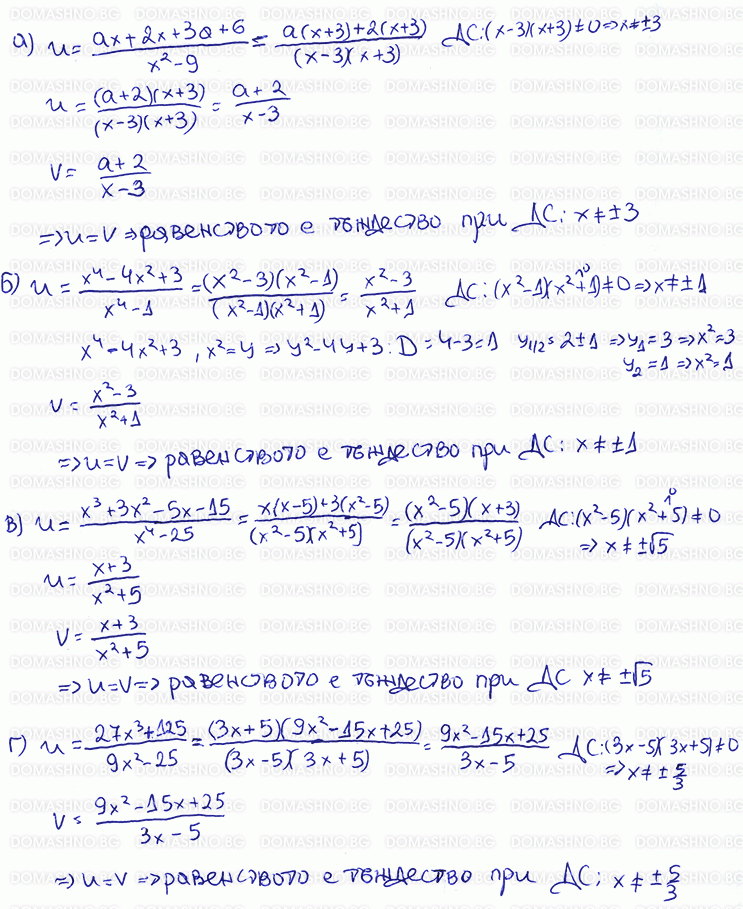 а) u = (ax+2x+3a+6)/(x²-9) = (a(x+3)+2(x+3))/((x-3)(x+3)) ДС: (x-3)(x+3)≠0 ⇒ x≠±3
u = ((a+2)(x+3))/((x-3)(x+3)) = (a+2)/(x-3)
V = (a+2)/(x-3)
⇒ u=V ⇒ равенството е тождество при ДС: x≠±3
б) u = (x⁴-4x²+3)/(x⁴-1) = ((x²-3)(x²-1))/((x²-1)(x²+1)) = (x²-3)/(x²+1) ДС: (x²-1)(x²+1)≠0 ⇒ x≠±1
x⁴-4x²+3, x²=y ⇒ y²-4y+3: D=4-3=1 y₁/₂=2±1 ⇒ y₁=3 ⇒ x²=3
y₂=1 ⇒ x²=1
V = (x²-3)/(x²+1)
⇒ u=V ⇒ равенството е тождество при ДС: x≠±1
в) u = (x³+3x²-5x-15)/(x⁴-25) = (x(x-5)+3(x²-5))/((x²-5)(x²+5)) = ((x²-5)(x+3))/((x²-5)(x²+5)) ДС: (x²-5)(x²+5)≠0
⇒ x≠±√5
u = (x+3)/(x²+5)
V = (x+3)/(x²+5)
⇒ u=V ⇒ равенството е тождество при ДС x≠±√5
г) u = (27x³+125)/(9x²-25) = ((3x+5)(9x²-15x+25))/((3x-5)(3x+5)) = (9x²-15x+25)/(3x-5) ДС: (3x-5)(3x+5)≠0
⇒ x≠±5/3
V = (9x²-15x+25)/(3x-5)
⇒ u=V ⇒ равенството е тождество при ДС: x≠±5/3